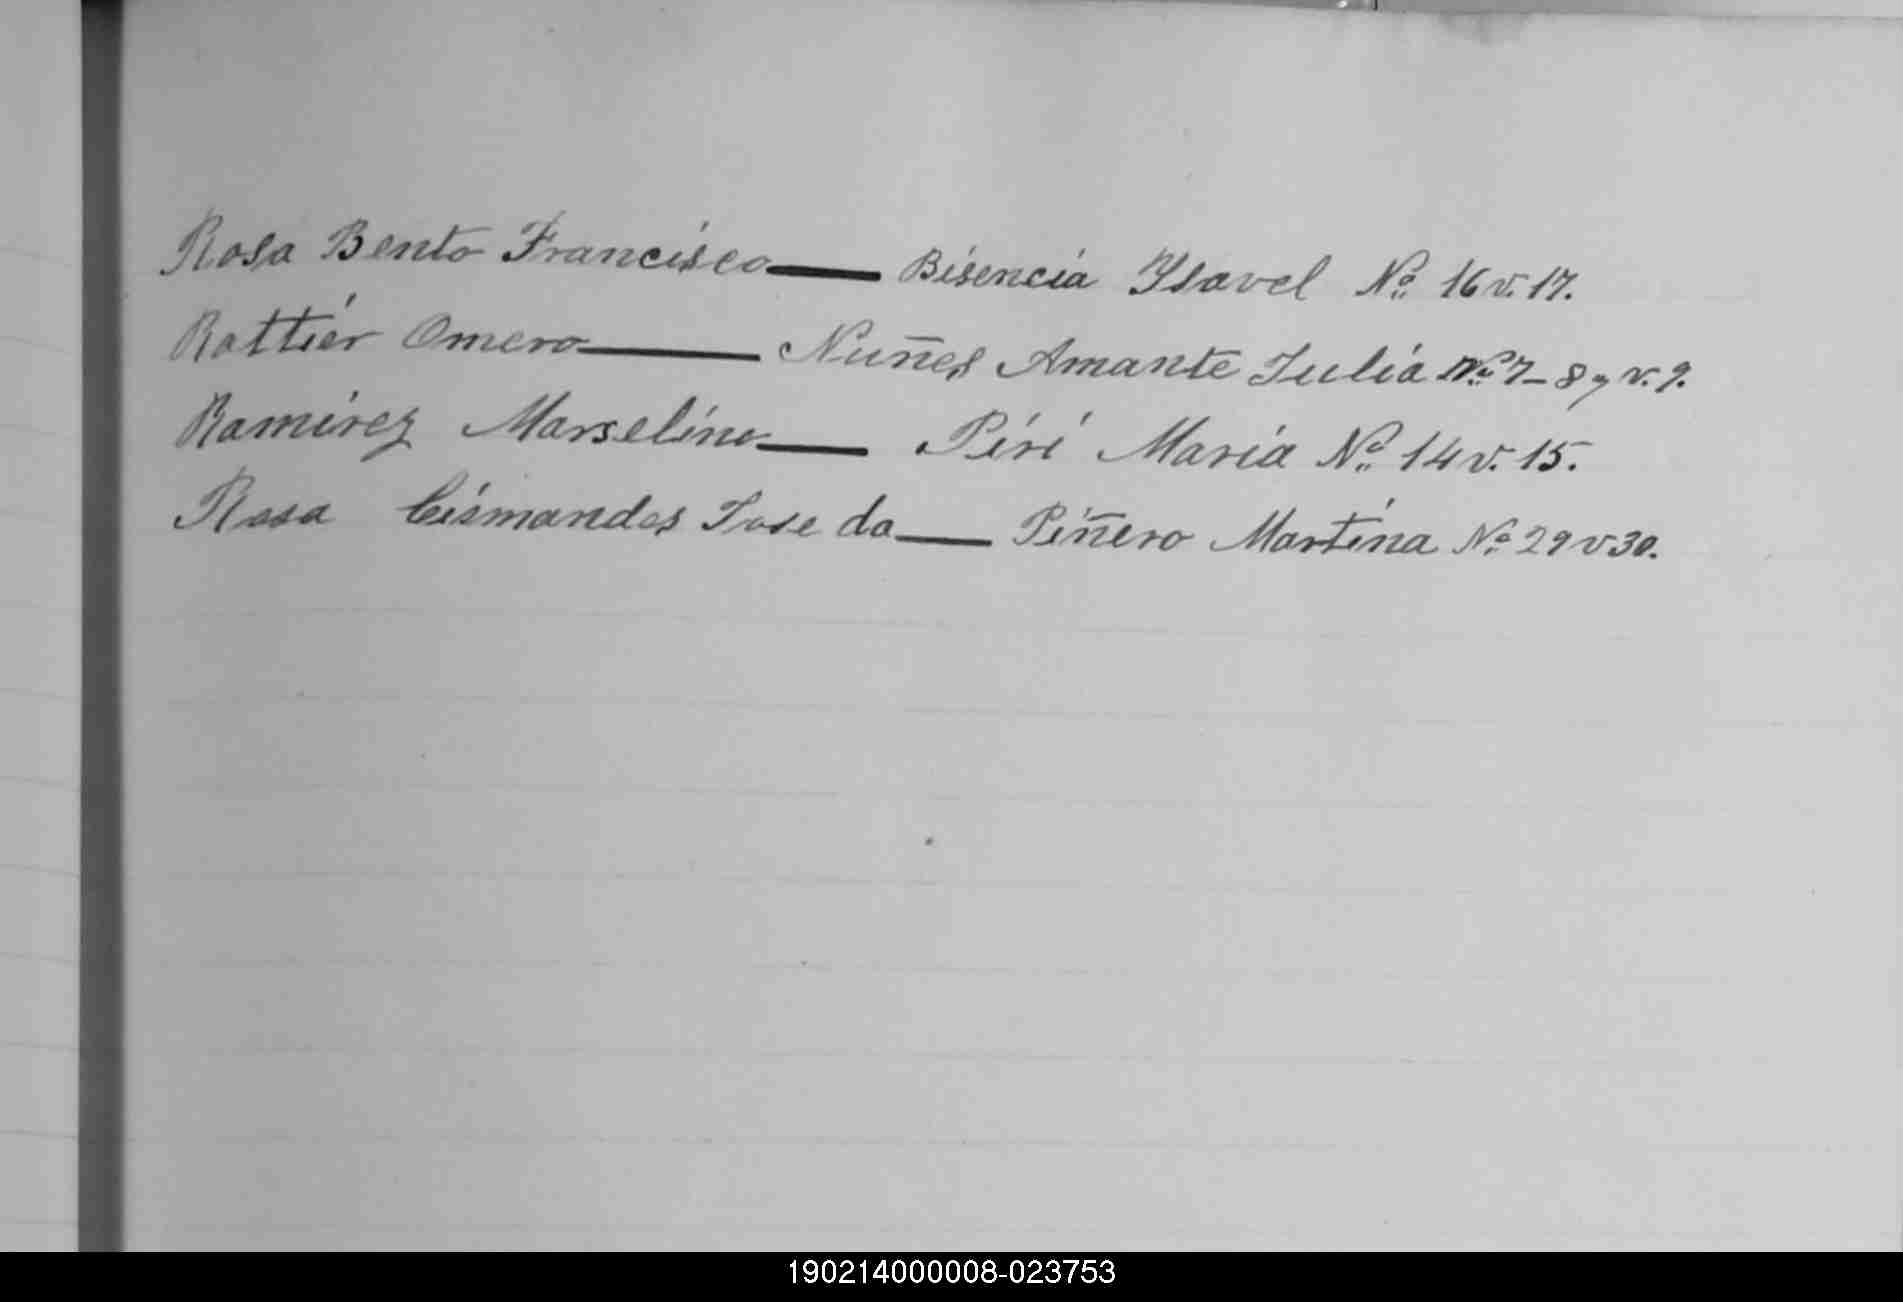 Rosa Bento Francisco — Bisencia Ysavel Nº 16 v. 17.
Rattier Omero — Nuñes Amante Julia Nº 7-8 y v. 9.
Ramirez Marselino — Piri Maria Nº 14 v. 15.
Rosa Jose da — Piñero Martina Nº 29 v 30.
190214000008-023753